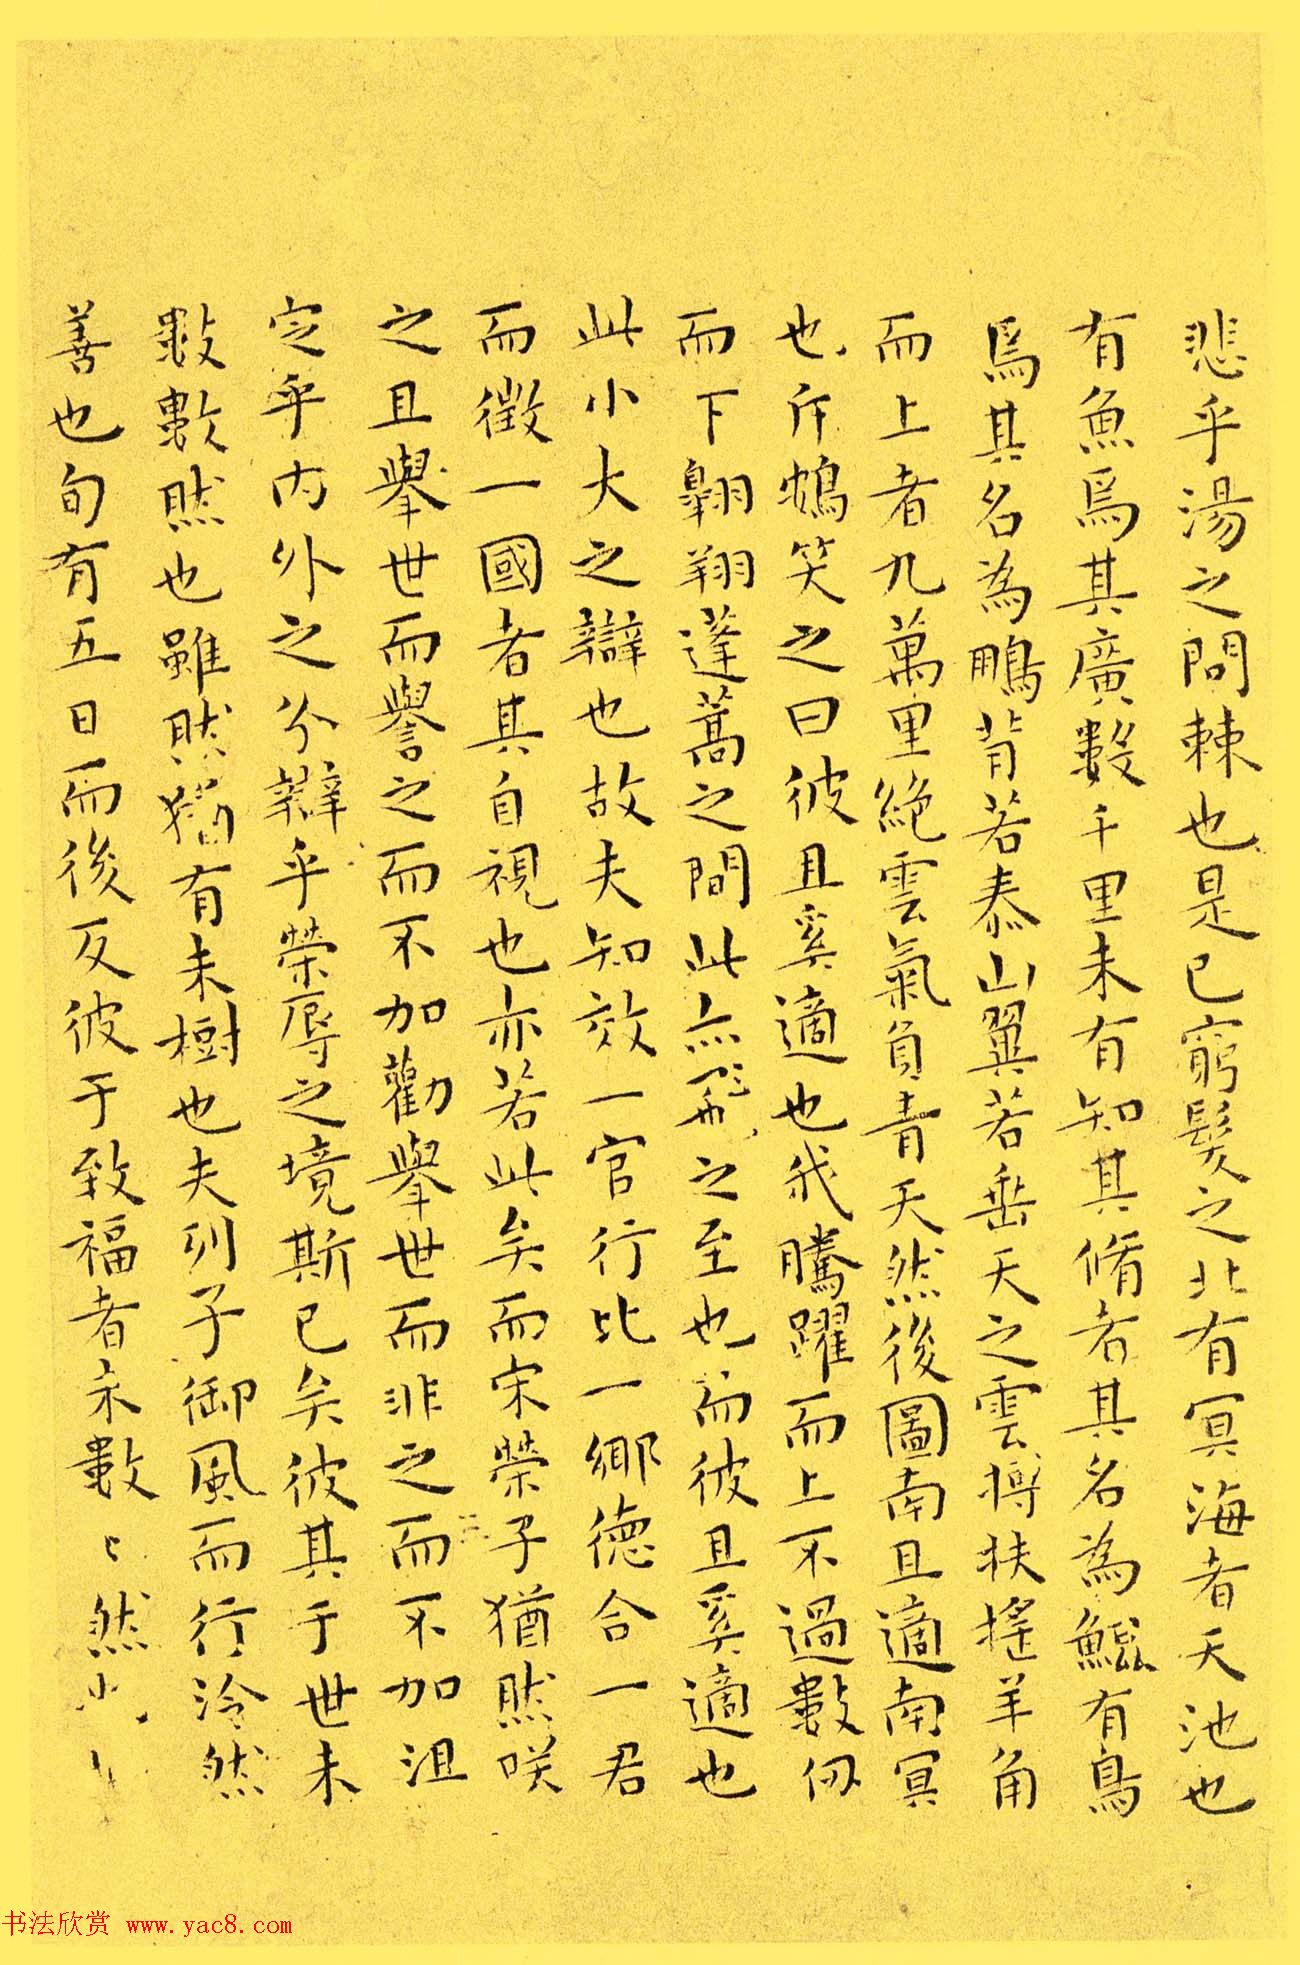 悲乎湯之問棘也是已窮髮之北有冥海者天池也
有魚焉其廣數千里未有知其脩者其名為鯤有鳥
焉其名為鵬背若泰山翼若垂天之雲摶扶搖羊角
而上者九萬里絕雲氣負青天然後圖南且適南冥
也斥鴳笑之曰彼且奚適也我騰躍而上不過數仞
而下翱翔蓬蒿之間此亦飛之至也而彼且奚適也
此小大之辯也故夫知效一官行比一鄉德合一君
而徵一國者其自視也亦若此矣而宋榮子猶然咲
之且舉世而譽之而不加勸舉世而非之而不加沮
定乎內外之分辯乎榮辱之境斯已矣彼其于世未
數數然也雖然猶有未樹也夫列子御風而行泠然
善也旬有五日而後反彼于致福者未數〻然
书法欣赏 www.yac8.com